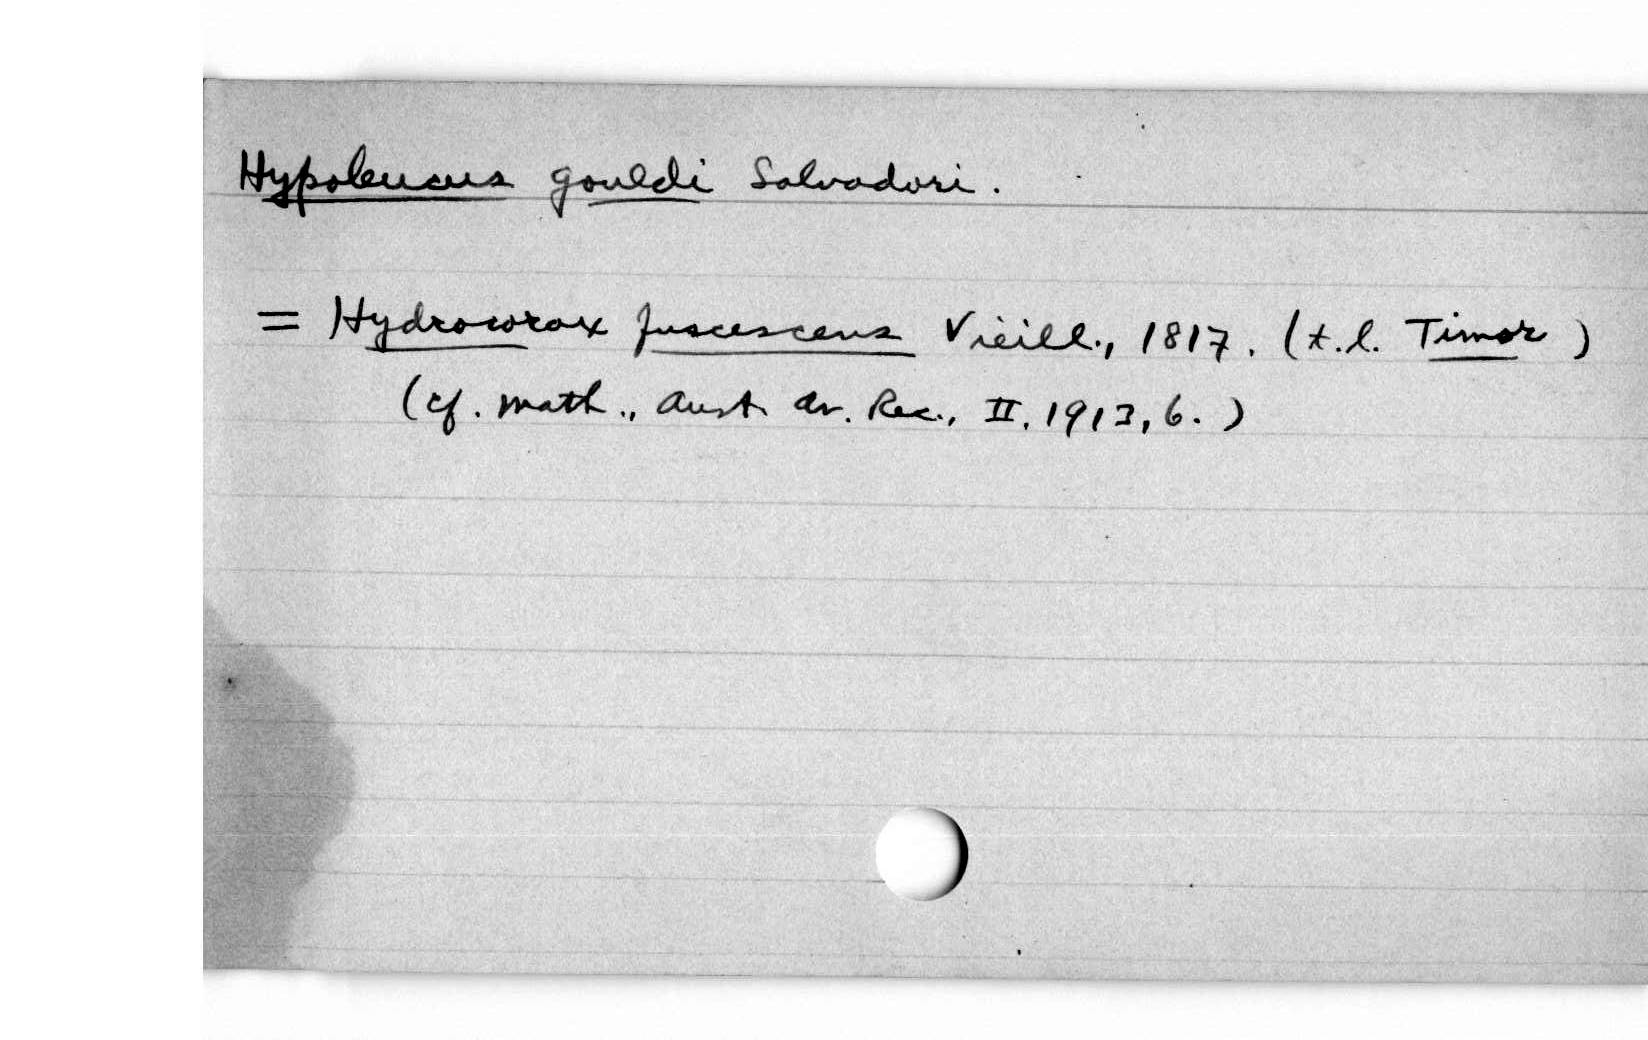 Hypoleucus gouldi Salvadori.
= Hydrocorax fuscescens Vieill., 1817. (t.l. Timor)
(cf. Math., Aust. Av. Rec., II, 1913, 6.)